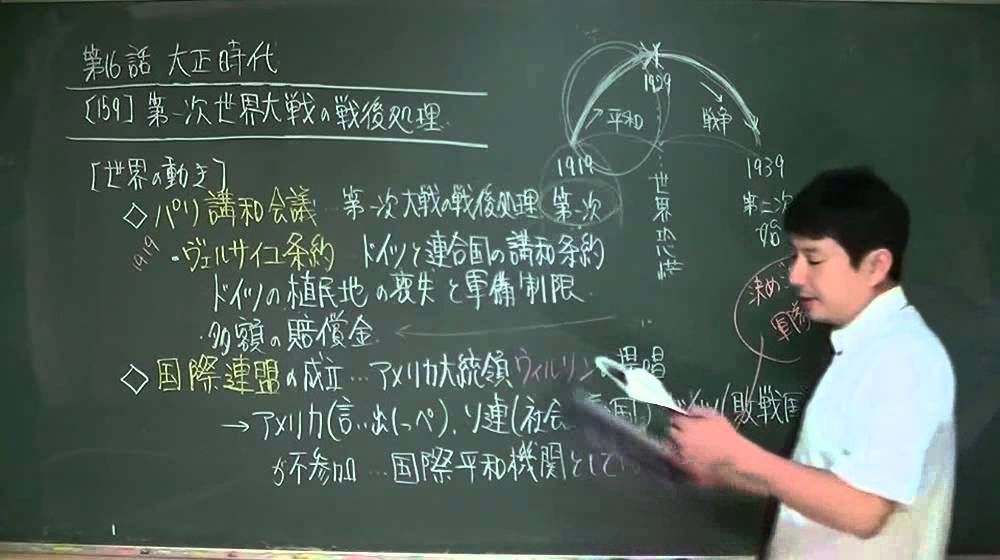 第16話 大正時代
[159] 第一次世界大戦の戦後処理
[世界の動き]
◇パリ講和会議…第一次大戦の戦後処理
1919
・ヴェルサイユ条約 ドイツと連合国の講和条約
ドイツの植民地の喪失と軍備制限
多額の賠償金
◇国際連盟の成立…アメリカ大統領ウィルソン 提唱
→アメリカ(言い出しっぺ)、ソ連(社会 国) (敗戦国
が不参加…国際平和機関として
1929
→平和
戦争
1919
第一次
世界恐慌
1939
第二次
始
決め
軍隊